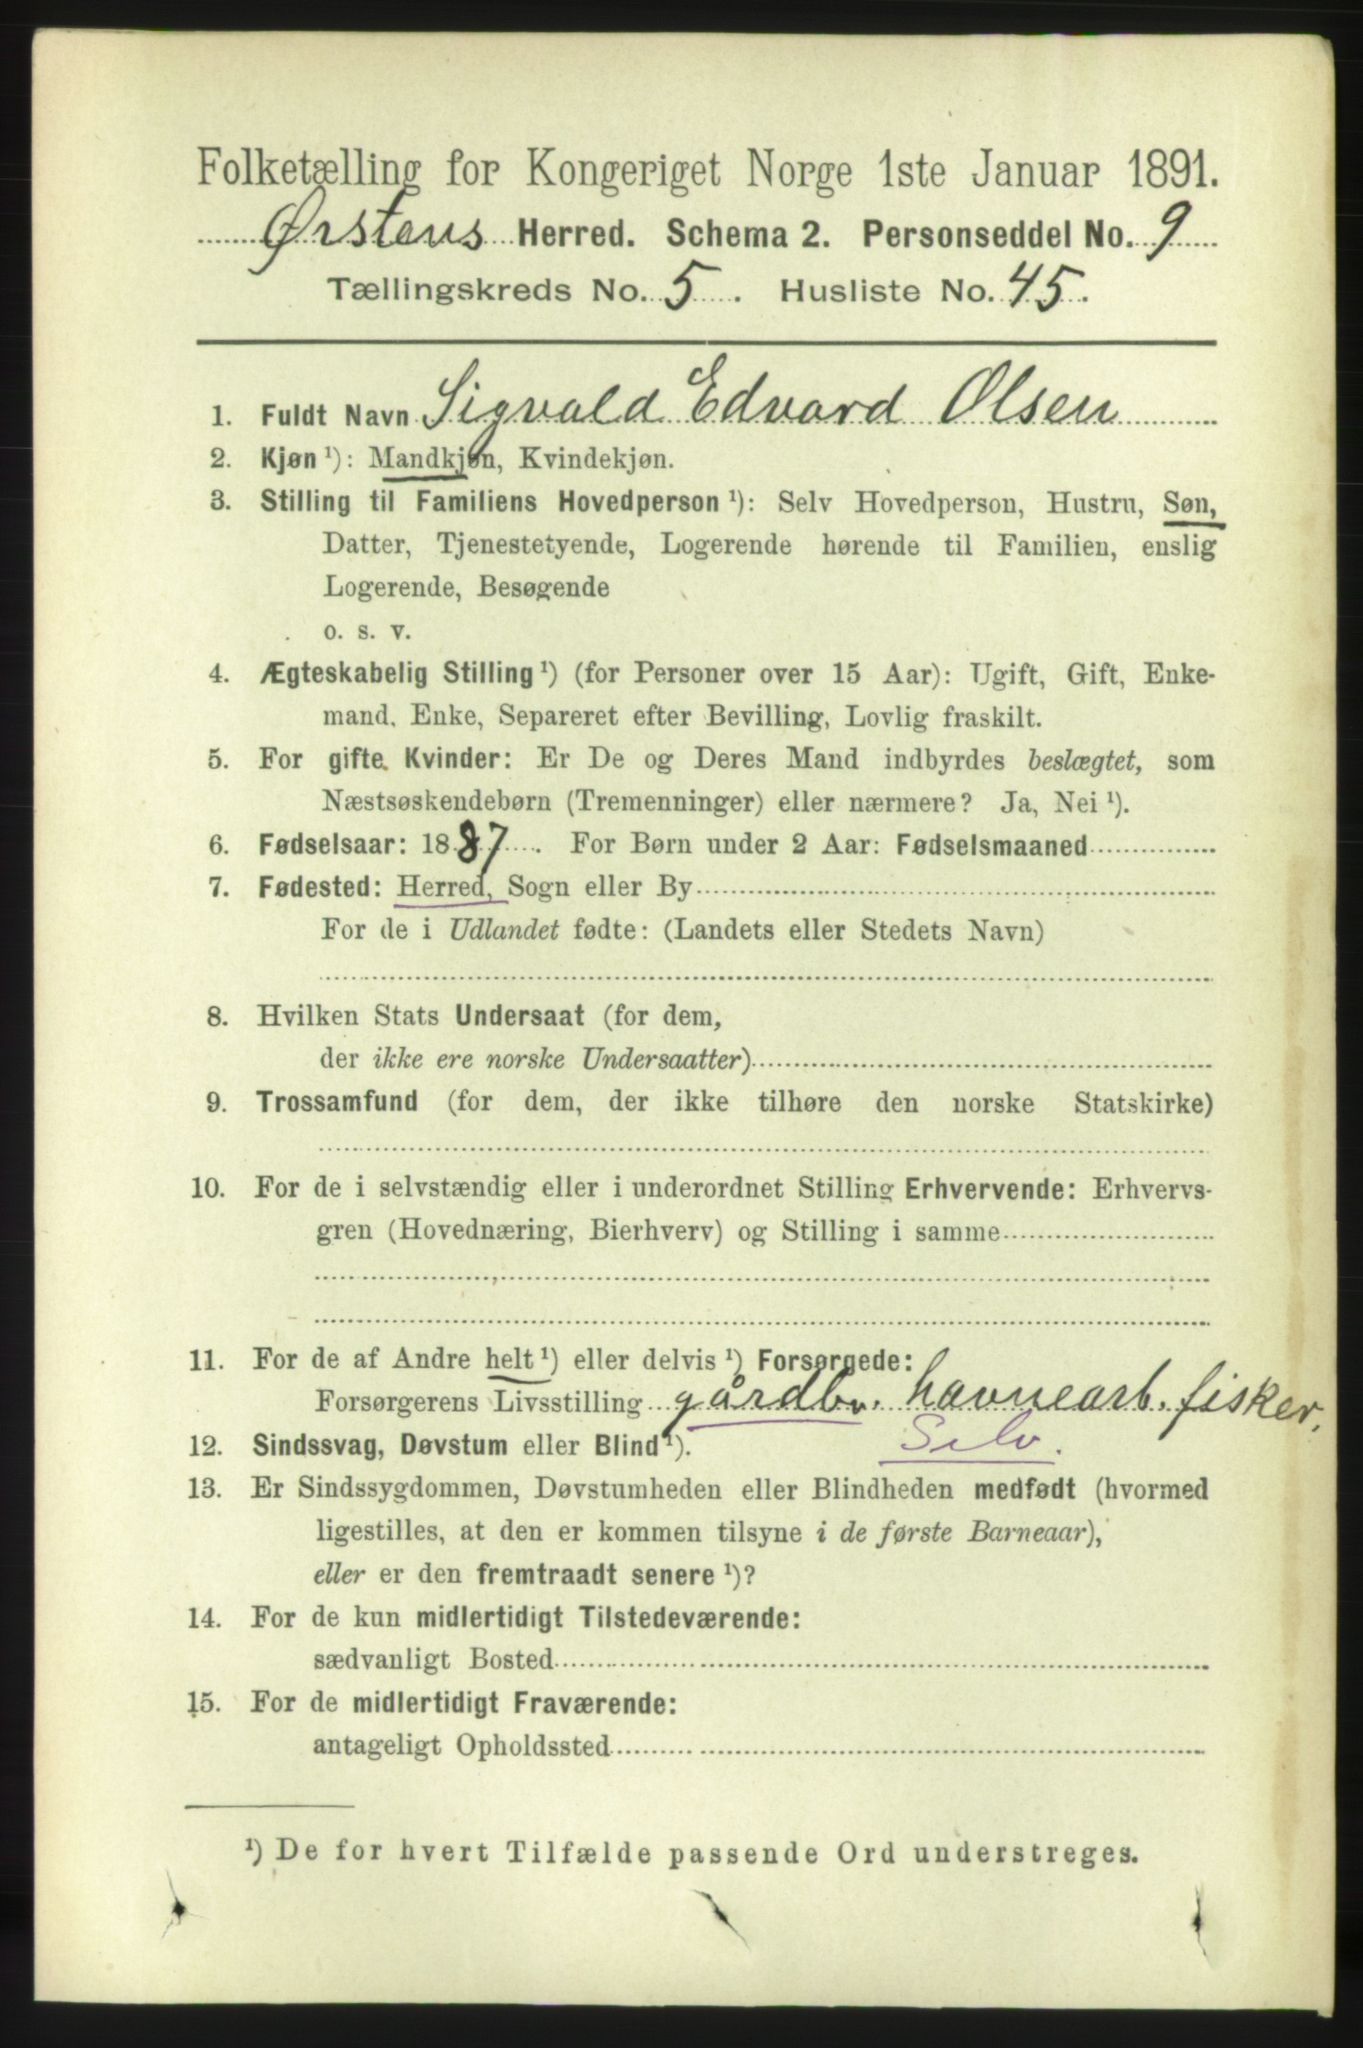 Folketælling for Kongeriget Norge 1ste Januar 1891.
Ørstens Herred. Schema 2. Personseddel No. 9
Tællingskreds No. 5. Husliste No. 45.
1. Fuldt Navn Sigvald Edvard Olsen
2. Kjøn ¹): Mandkjøn, Kvindekjøn.
3. Stilling til Familiens Hovedperson ¹): Selv Hovedperson, Hustru, Søn,
Datter, Tjenestetyende, Logerende hørende til Familien, enslig
Logerende, Besøgende
o. s. v.
4. Ægteskabelig Stilling ¹) (for Personer over 15 Aar): Ugift, Gift, Enke-
mand, Enke, Separeret efter Bevilling, Lovlig fraskilt.
5. For gifte Kvinder: Er De og Deres Mand indbyrdes beslægtet, som
Næstsøskendebørn (Tremenninger) eller nærmere? Ja, Nei ¹).
6. Fødselsaar: 1887. For Børn under 2 Aar: Fødselsmaaned
7. Fødested: Herred, Sogn eller By
For de i Udlandet fødte: (Landets eller Stedets Navn)
8. Hvilken Stats Undersaat (for dem,
der ikke ere norske Undersaatter)
9. Trossamfund (for dem, der ikke tilhøre den norske Statskirke)
10. For de i selvstændig eller i underordnet Stilling Erhvervende: Erhvervs-
gren (Hovednæring, Bierhverv) og Stilling i samme
11. For de af Andre helt ¹) eller delvis ¹) Forsørgede:
Forsørgerens Livsstilling gårdbr. havnearb. fisker.
12. Sindssvag, Døvstum eller Blind ¹). Selv.
13. Er Sindssygdommen, Døvstumheden eller Blindheden medfødt (hvormed
ligestilles, at den er kommen tilsyne i de første Barneaar),
eller er den fremtraadt senere ¹)?
14. For de kun midlertidigt Tilstedeværende:
sædvanligt Bosted
15. For de midlertidigt Fraværende:
antageligt Opholdssted
¹) De for hvert Tilfælde passende Ord understreges.